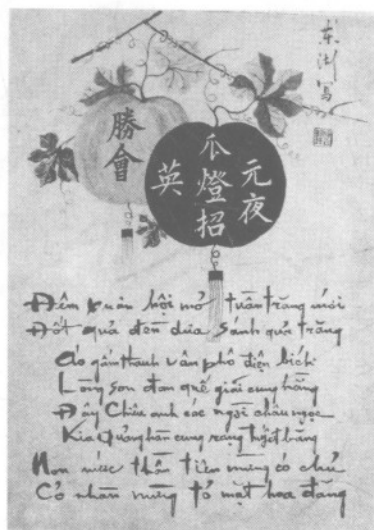 東湖寫
元夜
瓜燈招
英
勝會
Đêm xuân hội mở tuần trăng mới
Đốt quả đèn dưa sánh quả trăng
Áo gấm thanh vân phô điện bích
Lồng son đan quế giãi cung hằng
Đây Chiêu anh các ngời châu ngọc
Kìa Quảng hàn cung rạng tuyết băng
Non nước thần tiên mừng có chủ
Cố nhân mừng tỏ mặt hoa đăng